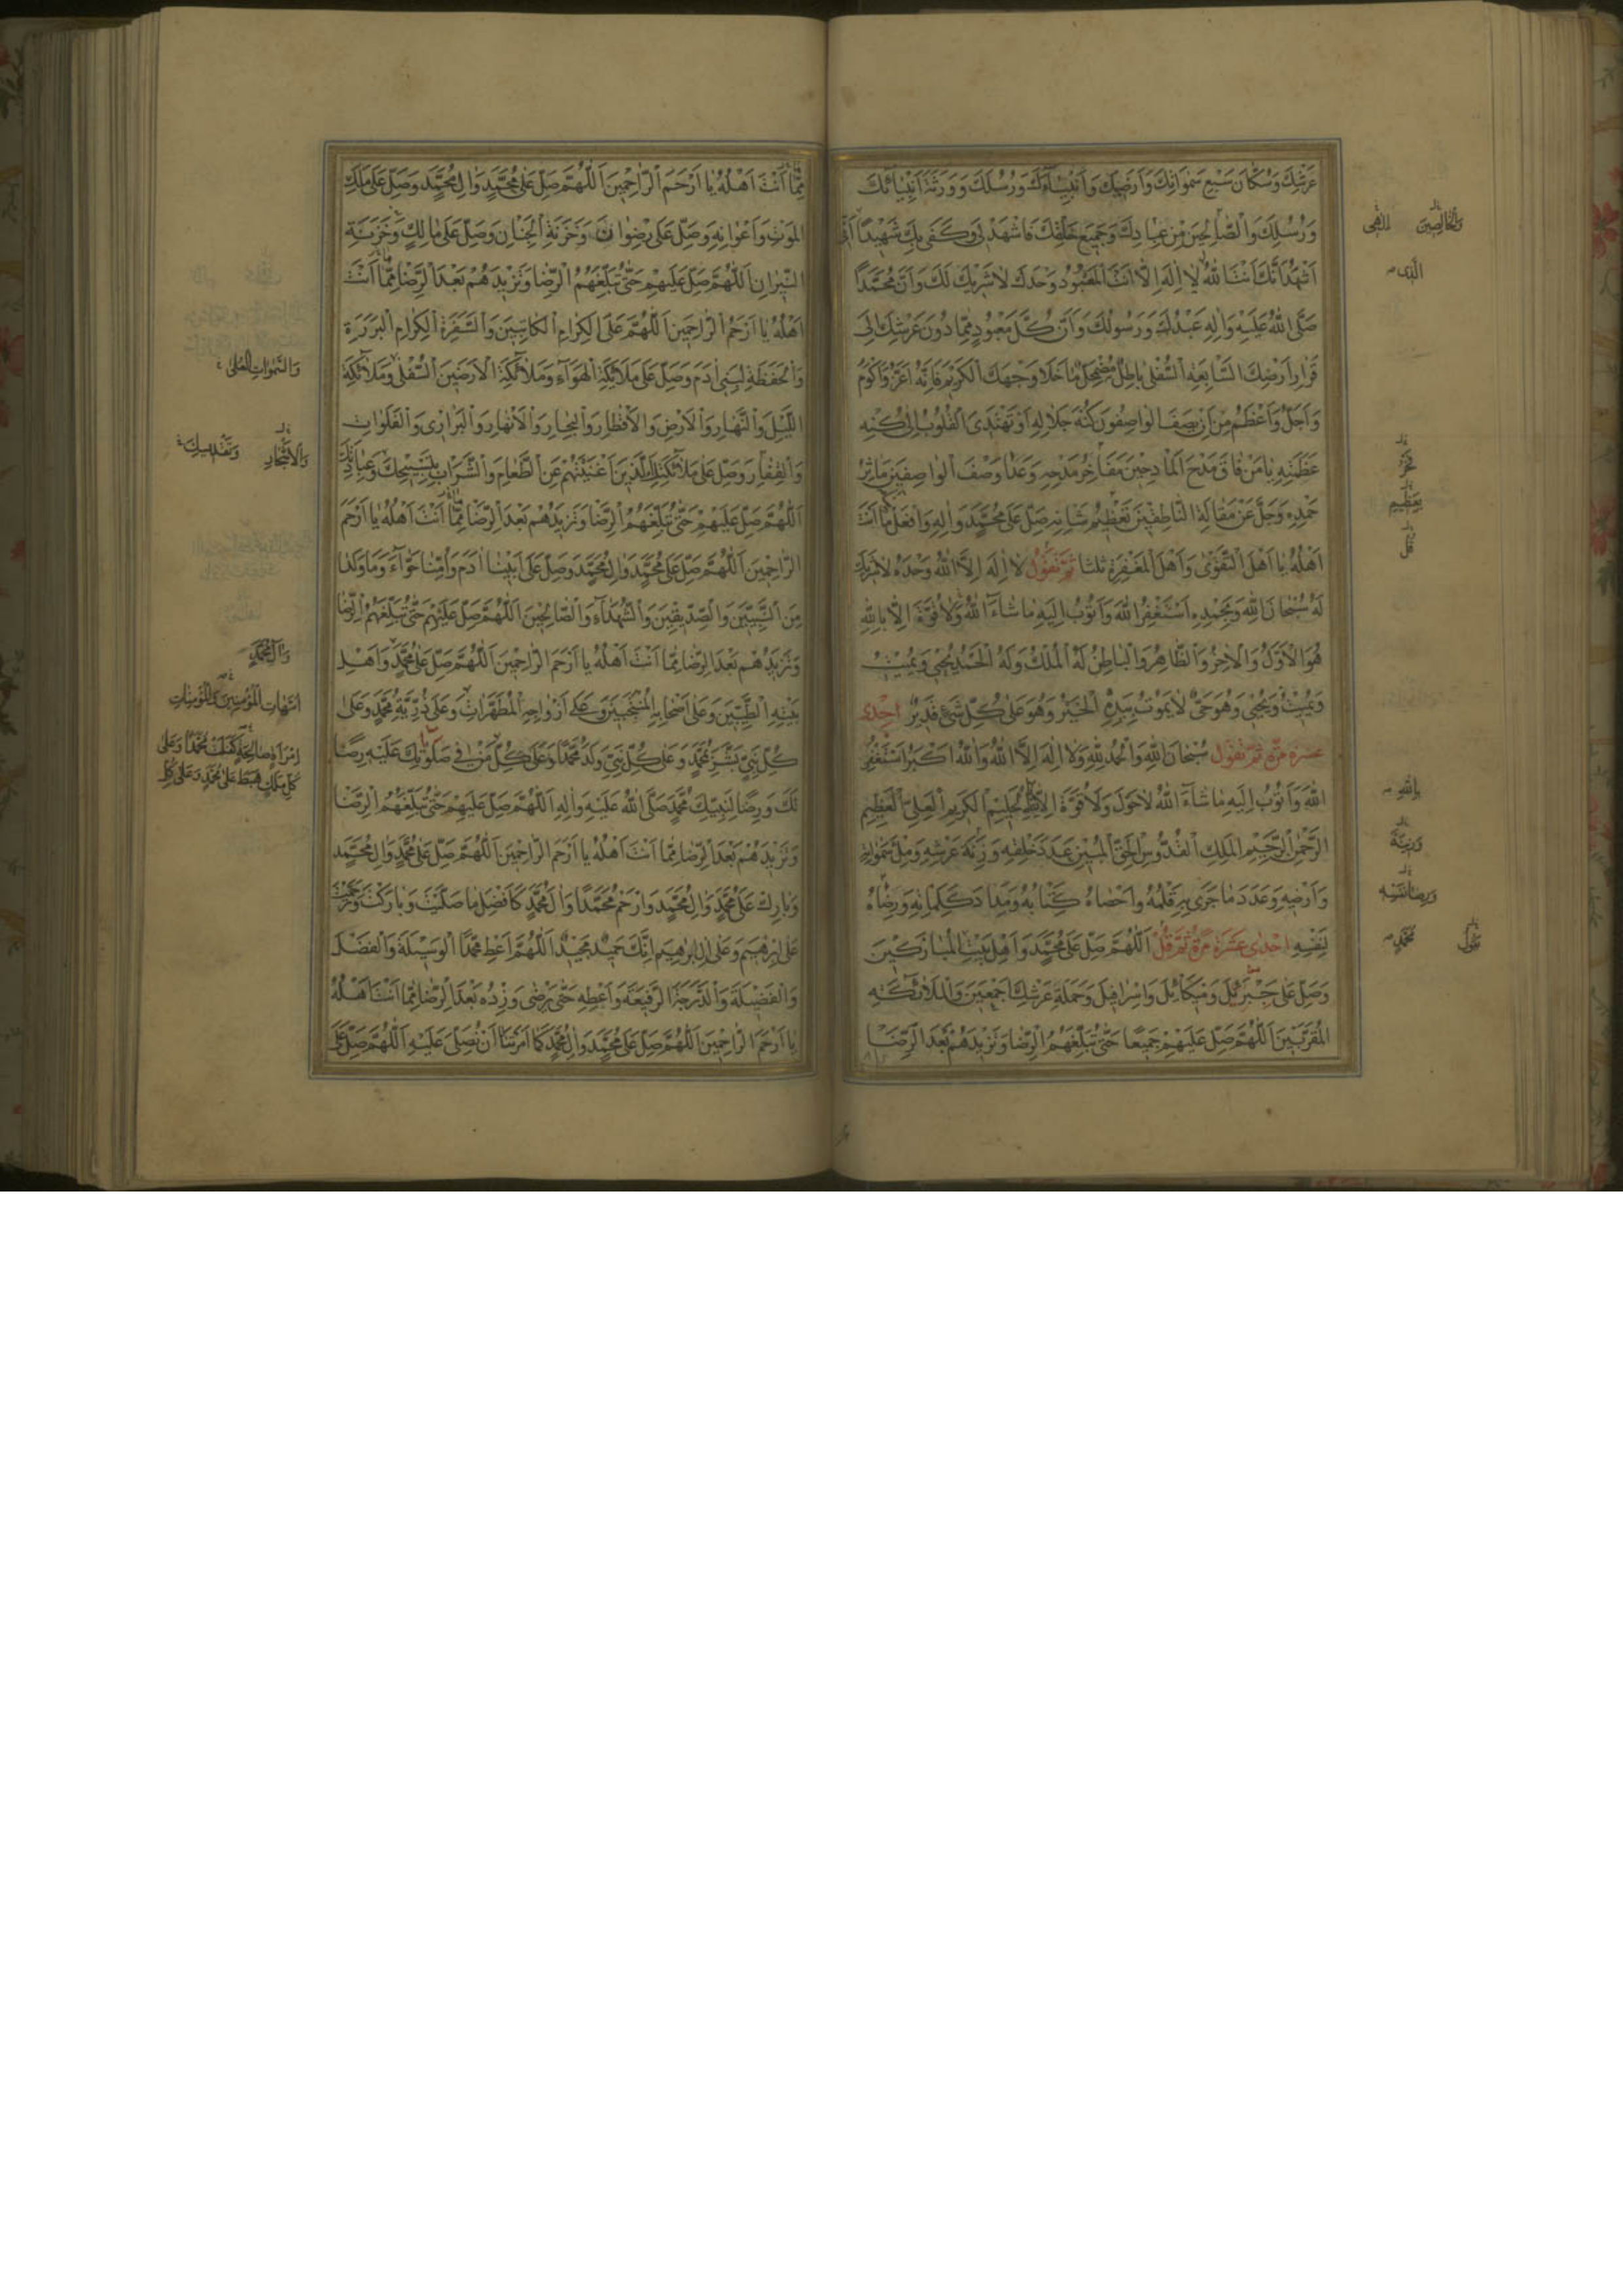 عَرْشِكَ وَسُكَّانَ سَبْعِ سَمٰوَاتِكَ وَاَرَضِيكَ وَاَنْبِيَآءَكَ وَرُسُلَكَ وَوَرَثَةَ اَنْبِيَائِكَ
وَرُسُلِكَ وَالصَّالِحِينَ مِنْ عِبَادِكَ وَجَمِيعَ خَلْقِكَ فَاشْهَدْ لِى وَكَفٰى بِكَ شَهِيدًا اَنِّى
اَشْهَدُ اَنَّكَ اَنْتَ اللّٰهُ لَا اِلٰهَ اِلَّا اَنْتَ الْمَعْبُودُ وَحْدَكَ لَا شَرِيكَ لَكَ وَاَنَّ مُحَمَّدًا
صَلَّى اللّٰهُ عَلَيْهِ وَاٰلِهِ عَبْدُكَ وَرَسُولُكَ وَاَنَّ كُلَّ مَعْبُودٍ مِمَّا دُونَ عَرْشِكَ اِلٰى
قَرَارِ اَرْضِكَ السَّابِعَةِ السُّفْلٰى بَاطِلٌ مُضْمَحِلٌّ مَا خَلَا وَجْهَكَ الْكَرِيمَ فَاِنَّهُ اَعَزُّ وَاَكْرَمُ
وَاَجَلُّ وَاَعْظَمُ مِنْ اَنْ يَصِفَ الْوَاصِفُونَ كُنْهَ جَلَالِهِ اَوْ تَهْتَدِىَ الْقُلُوبُ اِلٰى كُنْهِ
عَظَمَتِهِ يَا مَنْ فَاقَ مَدْحَ الْمَادِحِينَ مَفَاخِرُ مَدْحِهِ وَعَدَا وَصْفَ الْوَاصِفِينَ مَاٰثِرُ
حَمْدِهِ وَجَلَّ عَنْ مَقَالَةِ النَّاطِقِينَ تَعْظِيمُ شَانِهِ صَلِّ عَلٰى مُحَمَّدٍ وَاٰلِهِ وَافْعَلْ بِنَا مَا اَنْتَ
اَهْلُهُ يَا اَهْلَ التَّقْوٰى وَاَهْلَ الْمَغْفِرَةِ ثلثا ثُمَّ تَقُولُ لَا اِلٰهَ اِلَّا اللّٰهُ وَحْدَهُ لَا شَرِيكَ
لَهُ سُبْحَانَ اللّٰهِ وَبِحَمْدِهِ اَسْتَغْفِرُ اللّٰهَ وَاَتُوبُ اِلَيْهِ مَا شَآءَ اللّٰهُ وَلَا قُوَّةَ اِلَّا بِاللّٰهِ
هُوَ الْاَوَّلُ وَالْاٰخِرُ وَالظَّاهِرُ وَالْبَاطِنُ لَهُ الْمُلْكُ وَلَهُ الْحَمْدُ يُحْيِى وَيُمِيتُ
وَيُمِيتُ وَيُحْيِى وَهُوَ حَىٌّ لَا يَمُوتُ بِيَدِهِ الْخَيْرُ وَهُوَ عَلٰى كُلِّ شَىْءٍ قَدِيرٌ اِحْدٰى
عَشَرَةَ مَرَّةً ثُمَّ تَقُولُ سُبْحَانَ اللّٰهِ وَالْحَمْدُ لِلّٰهِ وَلَا اِلٰهَ اِلَّا اللّٰهُ وَاللّٰهُ اَكْبَرُ اَسْتَغْفِرُ
اللّٰهَ وَاَتُوبُ اِلَيْهِ مَا شَآءَ اللّٰهُ لَا حَوْلَ وَلَا قُوَّةَ اِلَّا بِاللّٰهِ الْحَلِيمِ الْكَرِيمِ الْعَلِىِّ الْعَظِيمِ
الرَّحْمٰنِ الرَّحِيمِ الْمَلِكِ الْقُدُّوسِ الْحَقِّ الْمُبِينِ عَدَدَ خَلْقِهِ وَزِنَةَ عَرْشِهِ وَمِلْءَ سَمٰوَاتِهِ
وَاَرْضِهِ وَعَدَدَ مَا جَرٰى بِهِ قَلَمُهُ وَاَحْصَاهُ كِتَابُهُ وَمِدَادَ كَلِمَاتِهِ وَرِضَاهُ
لِنَفْسِهِ اِحْدٰى عَشَرَةَ مَرَّةً ثُمَّ قُلْ اَللّٰهُمَّ صَلِّ عَلٰى مُحَمَّدٍ وَاَهْلِ بَيْتِ الْمُبَارَكِينَ
وَصَلِّ عَلٰى جَبْرَئِيلَ وَمِيكَائِلَ وَاِسْرَافِيلَ وَحَمَلَةِ عَرْشِكَ اَجْمَعِينَ وَالْمَلَائِكَةِ
الْمُقَرَّبِينَ اَللّٰهُمَّ صَلِّ عَلَيْهِمْ جَمِيعًا حَتّٰى تُبَلِّغَهُمُ الرِّضَا وَتَزِيدَهُمْ بَعْدَ الرِّضَا
الّذى
تَعْظِيمِ
بِاللّٰهِ
وَزِنَةَ
مُحَمَّدٍ
مِمَّا اَنْتَ اَهْلُهُ يَا اَرْحَمَ الرَّاحِمِينَ اَللّٰهُمَّ صَلِّ عَلٰى مُحَمَّدٍ وَاٰلِ مُحَمَّدٍ وَصَلِّ عَلٰى مَلَكِ
الْمَوْتِ وَاَعْوَانِهِ وَصَلِّ عَلٰى رِضْوَانَ وَخَزَنَةِ الْجِنَانِ وَصَلِّ عَلٰى مَالِكٍ وَخَزَنَةِ
النِّيرَانِ اَللّٰهُمَّ صَلِّ عَلَيْهِمْ حَتّٰى تُبَلِّغَهُمُ الرِّضَا وَتَزِيدَهُمْ بَعْدَ الرِّضَا مِمَّا اَنْتَ
اَهْلُهُ يَا اَرْحَمَ الرَّاحِمِينَ اَللّٰهُمَّ صَلِّ عَلَى الْكِرَامِ الْكَاتِبِينَ وَالسَّفَرَةِ الْكِرَامِ الْبَرَرَةِ
وَالْحَفَظَةِ لِبَنِى اٰدَمَ وَصَلِّ عَلٰى مَلَائِكَةِ الْهَوَآءِ وَمَلَائِكَةِ الْاَرَضِينَ السُّفْلٰى وَمَلَائِكَةِ
اللَّيْلِ وَالنَّهَارِ وَالْاَرْضِ وَالْاَقْطَارِ وَالْبِحَارِ وَالْاَنْهَارِ وَالْبَرَارِى وَالْفَلَوَاتِ
وَالْقِفَارِ وَصَلِّ عَلٰى مَلَائِكَتِكَ الَّذِينَ اَغْنَيْتَهُمْ عَنِ الطَّعَامِ وَالشَّرَابِ بِتَسْبِيحِكَ وَعِبَادَتِكَ
اَللّٰهُمَّ صَلِّ عَلَيْهِمْ حَتّٰى تُبَلِّغَهُمُ الرِّضَا وَتَزِيدَهُمْ بَعْدَ الرِّضَا مِمَّا اَنْتَ اَهْلُهُ يَا اَرْحَمَ
الرَّاحِمِينَ اَللّٰهُمَّ صَلِّ عَلٰى مُحَمَّدٍ وَاٰلِ مُحَمَّدٍ وَصَلِّ عَلٰى اَبِينَا اٰدَمَ وَاُمِّنَا حَوَّآءَ وَمَا وَلَدَا
مِنَ النَّبِيِّينَ وَالصِّدِّيقِينَ وَالشُّهَدَآءِ وَالصَّالِحِينَ اَللّٰهُمَّ صَلِّ عَلَيْهِمْ حَتّٰى تُبَلِّغَهُمُ الرِّضَا
وَتَزِيدَهُمْ بَعْدَ الرِّضَا مِمَّا اَنْتَ اَهْلُهُ يَا اَرْحَمَ الرَّاحِمِينَ اَللّٰهُمَّ صَلِّ عَلٰى مُحَمَّدٍ وَاَهْلِ
بَيْتِهِ الطَّيِّبِينَ وَعَلٰى اَصْحَابِهِ الْمُنْتَجَبِينَ وَعَلٰى اَزْوَاجِهِ الْمُطَهَّرَاتِ وَعَلٰى ذُرِّيَّةِ مُحَمَّدٍ وَعَلٰى
كُلِّ نَبِىٍّ بَشَّرَ بِمُحَمَّدٍ وَعَلٰى كُلِّ نَبِىٍّ وَلَدَ مُحَمَّدًا وَعَلٰى كُلِّ مَنْ فِى صَلَوٰتِكَ عَلَيْهِ رِضًا
لَكَ وَرِضًا لِنَبِيِّكَ مُحَمَّدٍ صَلَّى اللّٰهُ عَلَيْهِ وَاٰلِهِ اَللّٰهُمَّ صَلِّ عَلَيْهِمْ حَتّٰى تُبَلِّغَهُمُ الرِّضَا
وَتَزِيدَهُمْ بَعْدَ الرِّضَا مِمَّا اَنْتَ اَهْلُهُ يَا اَرْحَمَ الرَّاحِمِينَ اَللّٰهُمَّ صَلِّ عَلٰى مُحَمَّدٍ وَاٰلِ مُحَمَّدٍ
وَبَارِكْ عَلٰى مُحَمَّدٍ وَاٰلِ مُحَمَّدٍ وَارْحَمْ مُحَمَّدًا وَاٰلَ مُحَمَّدٍ كَاَفْضَلِ مَا صَلَّيْتَ وَبَارَكْتَ وَتَرَحَّمْتَ
عَلٰى اِبْرٰهِيمَ وَعَلٰى اٰلِ اِبْرٰهِيمَ اِنَّكَ حَمِيدٌ مَجِيدٌ اَللّٰهُمَّ اَعْطِ مُحَمَّدًا الْوَسِيلَةَ وَالْفَضْلَ
وَالْفَضِيلَةَ وَالدَّرَجَةَ الرَّفِيعَةَ وَاَعْطِهِ حَتّٰى يَرْضٰى وَزِدْهُ بَعْدَ الرِّضَا مِمَّا اَنْتَ اَهْلُهُ
يَا اَرْحَمَ الرَّاحِمِينَ اَللّٰهُمَّ صَلِّ عَلٰى مُحَمَّدٍ وَاٰلِ مُحَمَّدٍ كَمَا اَمَرْتَنَا اَنْ نُصَلِّىَ عَلَيْهِ اَللّٰهُمَّ صَلِّ عَلٰى
وَالسَّمٰوَاتِ الْعُلٰى
وَالْاَشْجَارِ وَتَقْدِيسِكَ
وَاٰلِ مُحَمَّدٍ
اُمَّهَاتِ الْمُؤْمِنِينَ وَالْمُؤْمِنَاتِ
امْرَاَةٍ صَالِحَةٍ كَفَلَتْ مُحَمَّدًا وَعَلٰى
كُلِّ مَلَكٍ هَبَطَ عَلٰى مُحَمَّدٍ وَعَلٰى كُلِّ